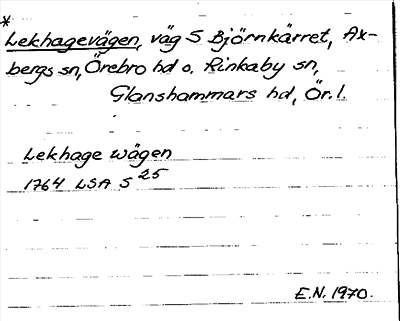 *
Lekhagevägen, väg S Björnkärret, Ax-
bergs sn, Örebro hd o. Rinkaby sn,
Glanshammars hd, Ör.l.
Lekhage wägen
1764 LSA S 25
E.N. 1970.